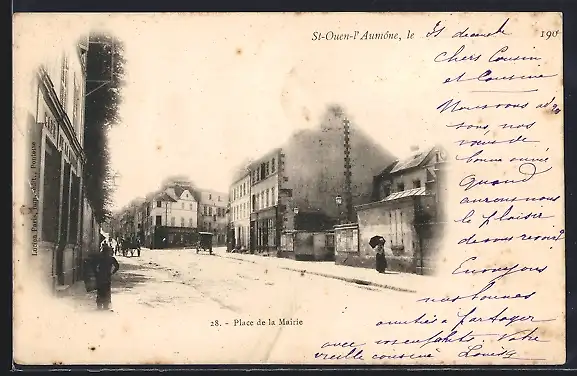 St-Ouen-l'Aumône, le 31 décembre 190
Chers Cousin
et Cousine
Nous vous adres
sons, nos
vœux de
bonne année
Quand
aurons nous
le plaisir
de vous revoir
Envoyons
nos bonnes
amitiés à partager
avec vos enfants Votre
vieille cousine Louise
28. - Place de la Mairie
Lucien Paris, Imp.-édit., Pontoise